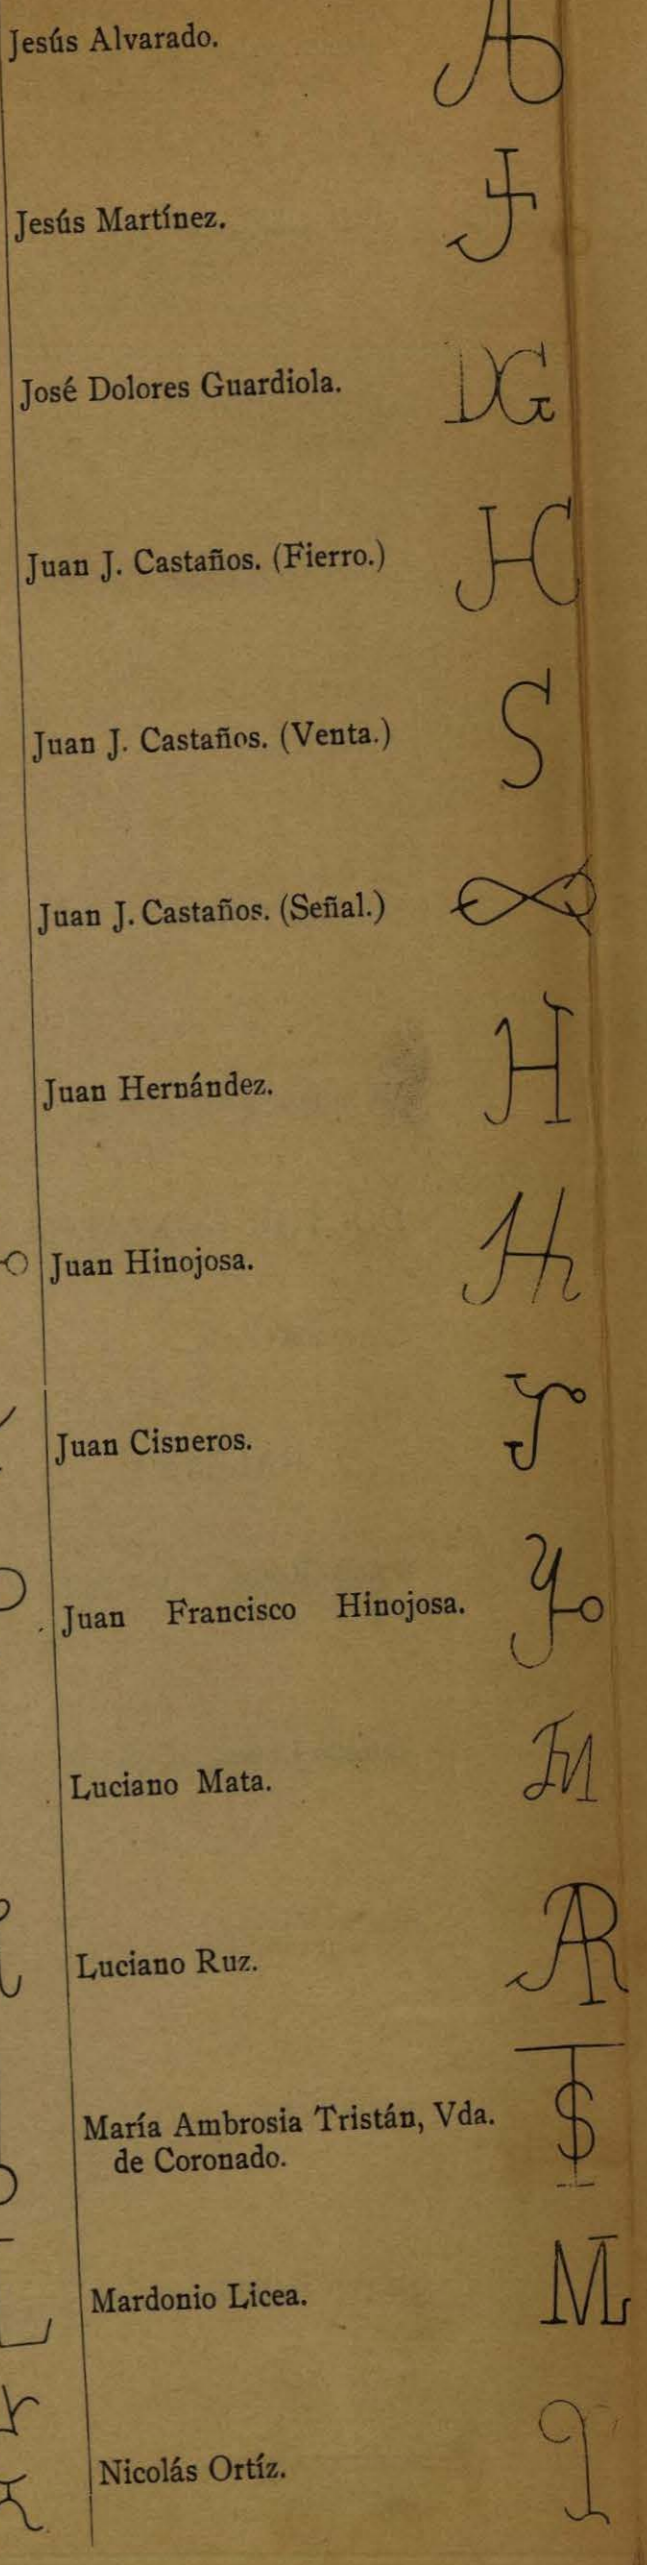 Jesús Alvarado.
Jesús Martínez.
José Dolores Guardiola.
DG
Juan J. Castaños. (Fierro.)
Juan J. Castaños. (Venta.)
S
Juan J. Castaños. (Señal.)
Juan Hernández.
H
Juan Hinojosa.
Juan Cisneros.
Juan Francisco Hinojosa.
Luciano Mata.
Luciano Ruz.
AR
María Ambrosia Tristán, Vda.
de Coronado.
Mardonio Licea.
Nicolás Ortíz.